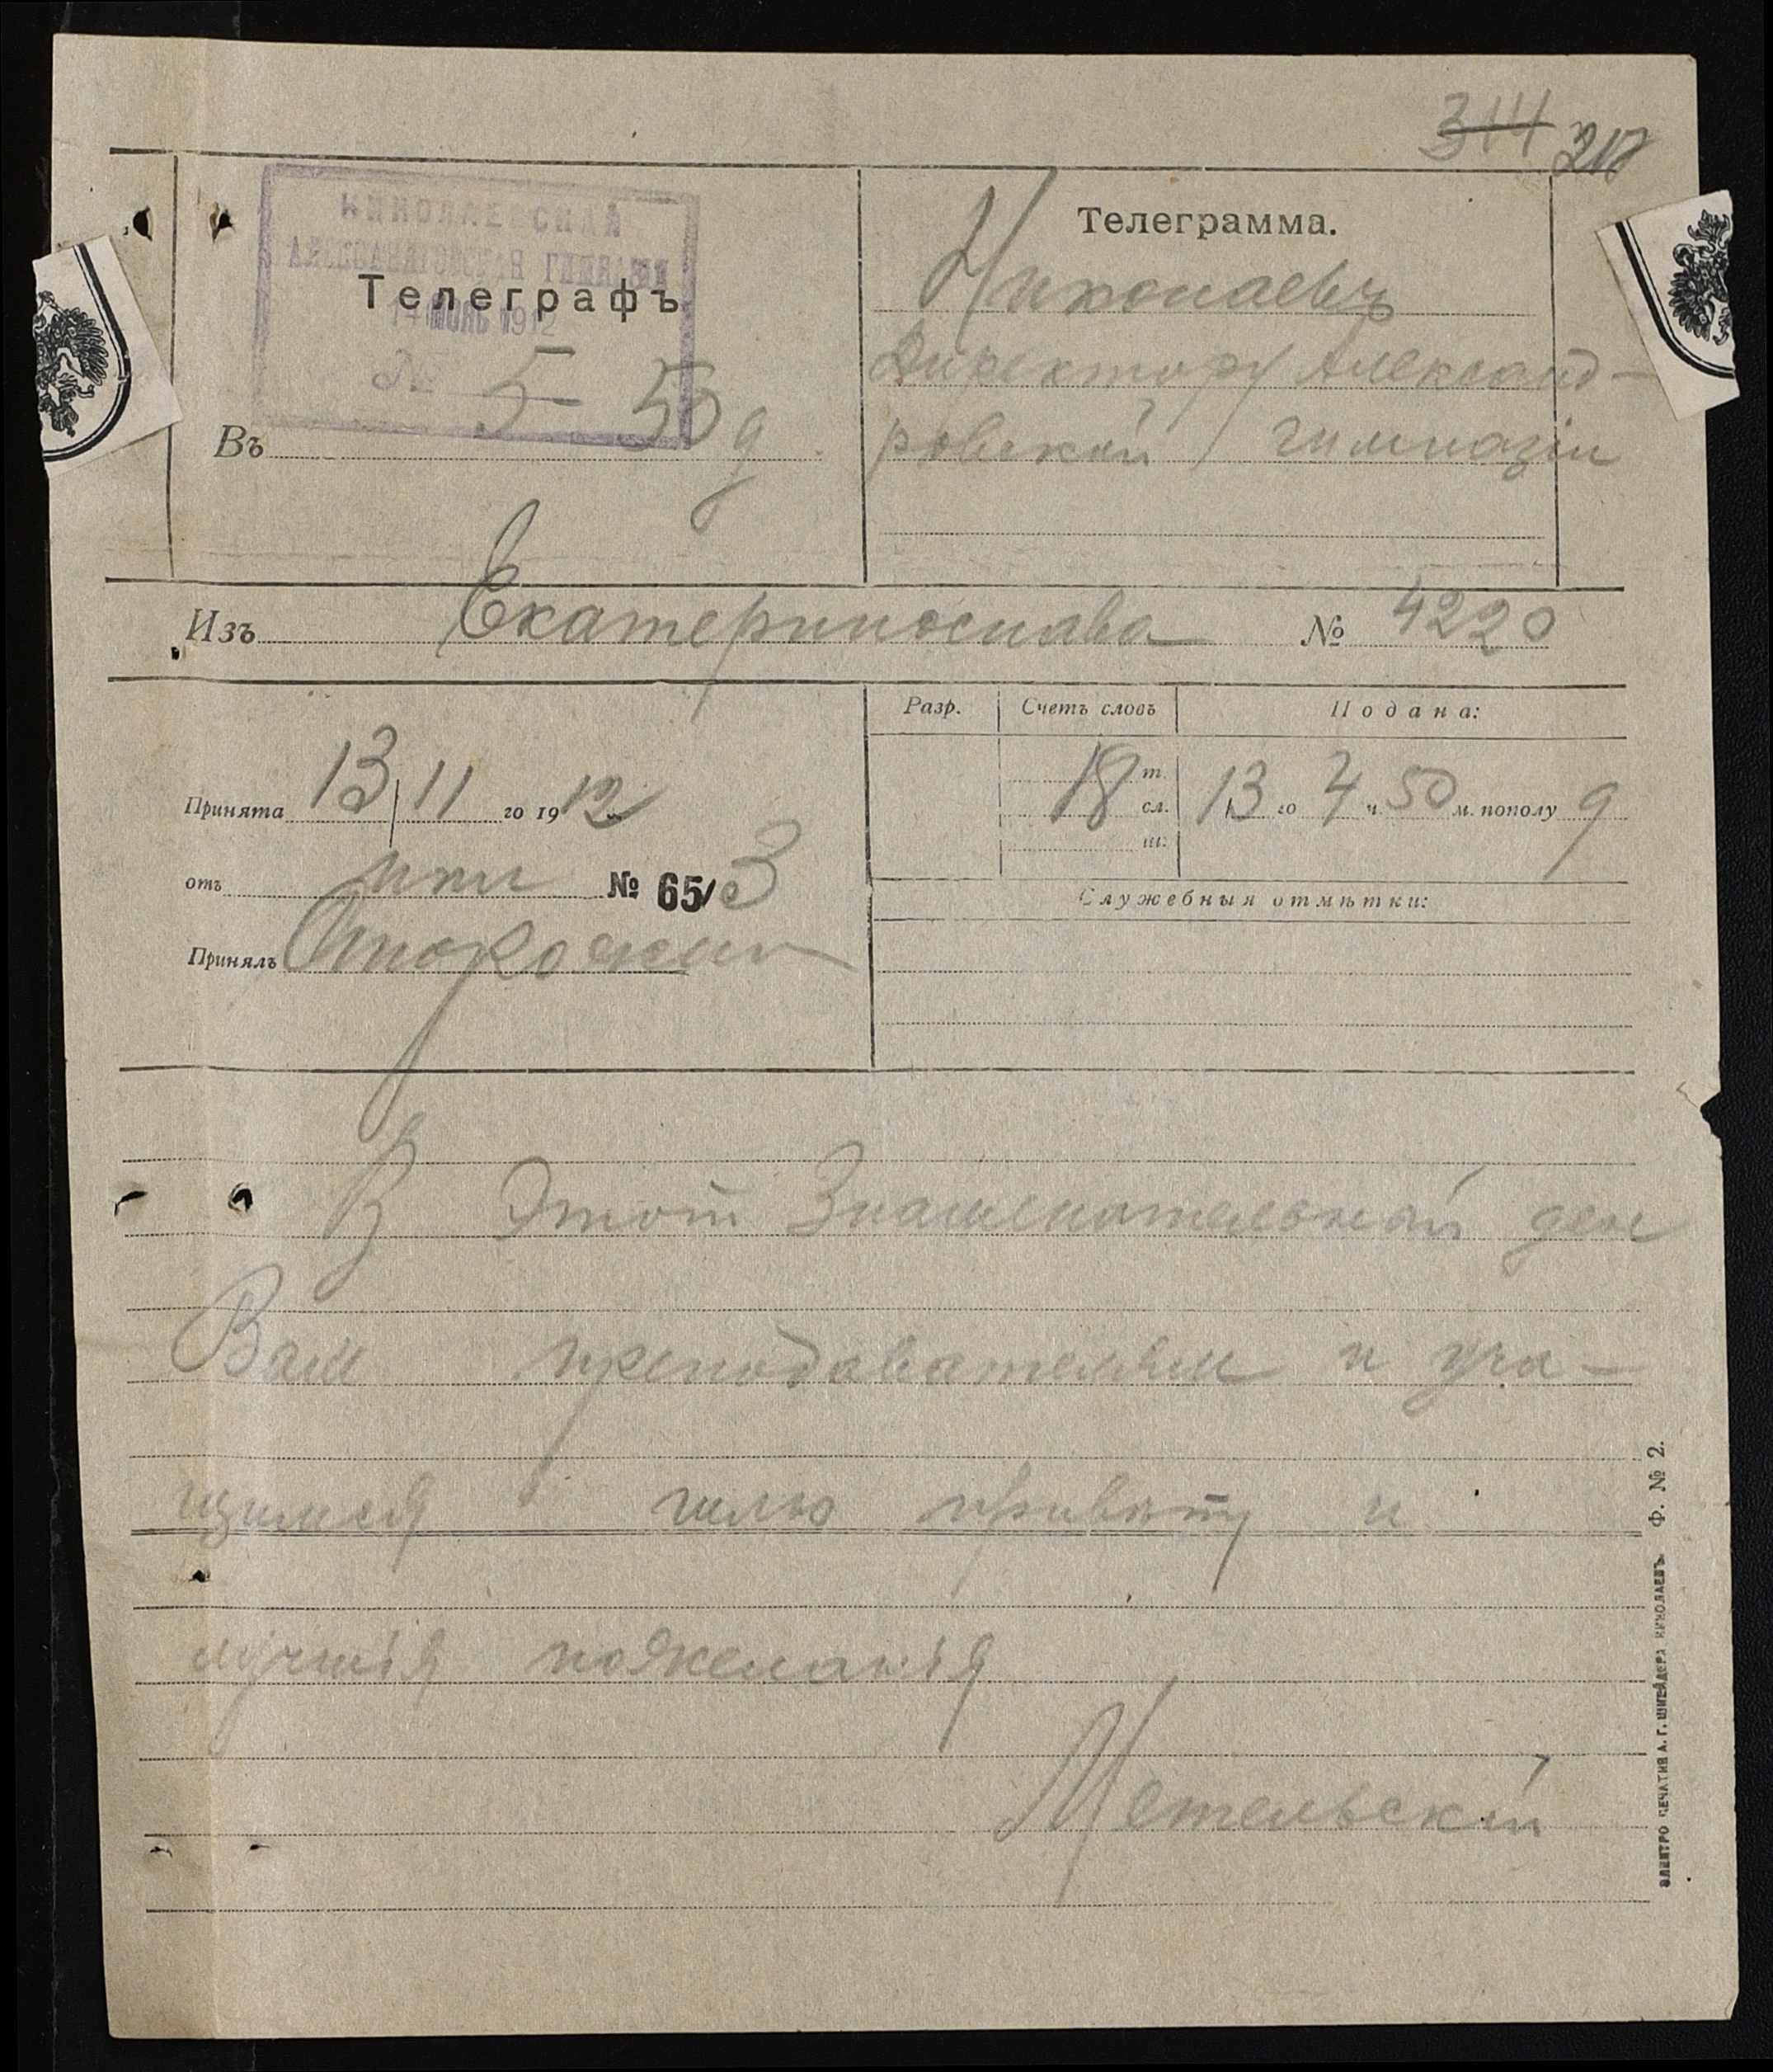 314 217
НИКОЛАЕВСКАЯ
АЛЕКСАНДРОВСКАЯ ГИМНАЗІЯ
1912
№
Телеграфъ
Въ 5-50 д
Телеграмма.
Николаевъ
Директору Александ-
ровской гимназіи
Изъ Екатеринослава № 4220
Принята 13/11 го 1912
отъ № 65/3
Принялъ
Разр. Счетъ словъ Подана:
18 т. сл. ш: 13 го 4 ч. 50 м. пополу д
Служебныя отмѣтки:
В Этот Знаменательный ден
Вам преподавателям и уча-
щимся шлю привѣт и
лучшія пожеланія
Метельскій
ЭЛЕКТРО ПЕЧАТНЯ А. Г. ШНЕЙДЕРА НИКОЛАЕВЪ. Ф. № 2.